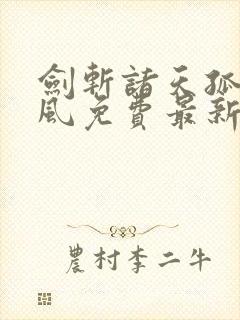 劍斬諸天孤
風免費最新
農村李二牛